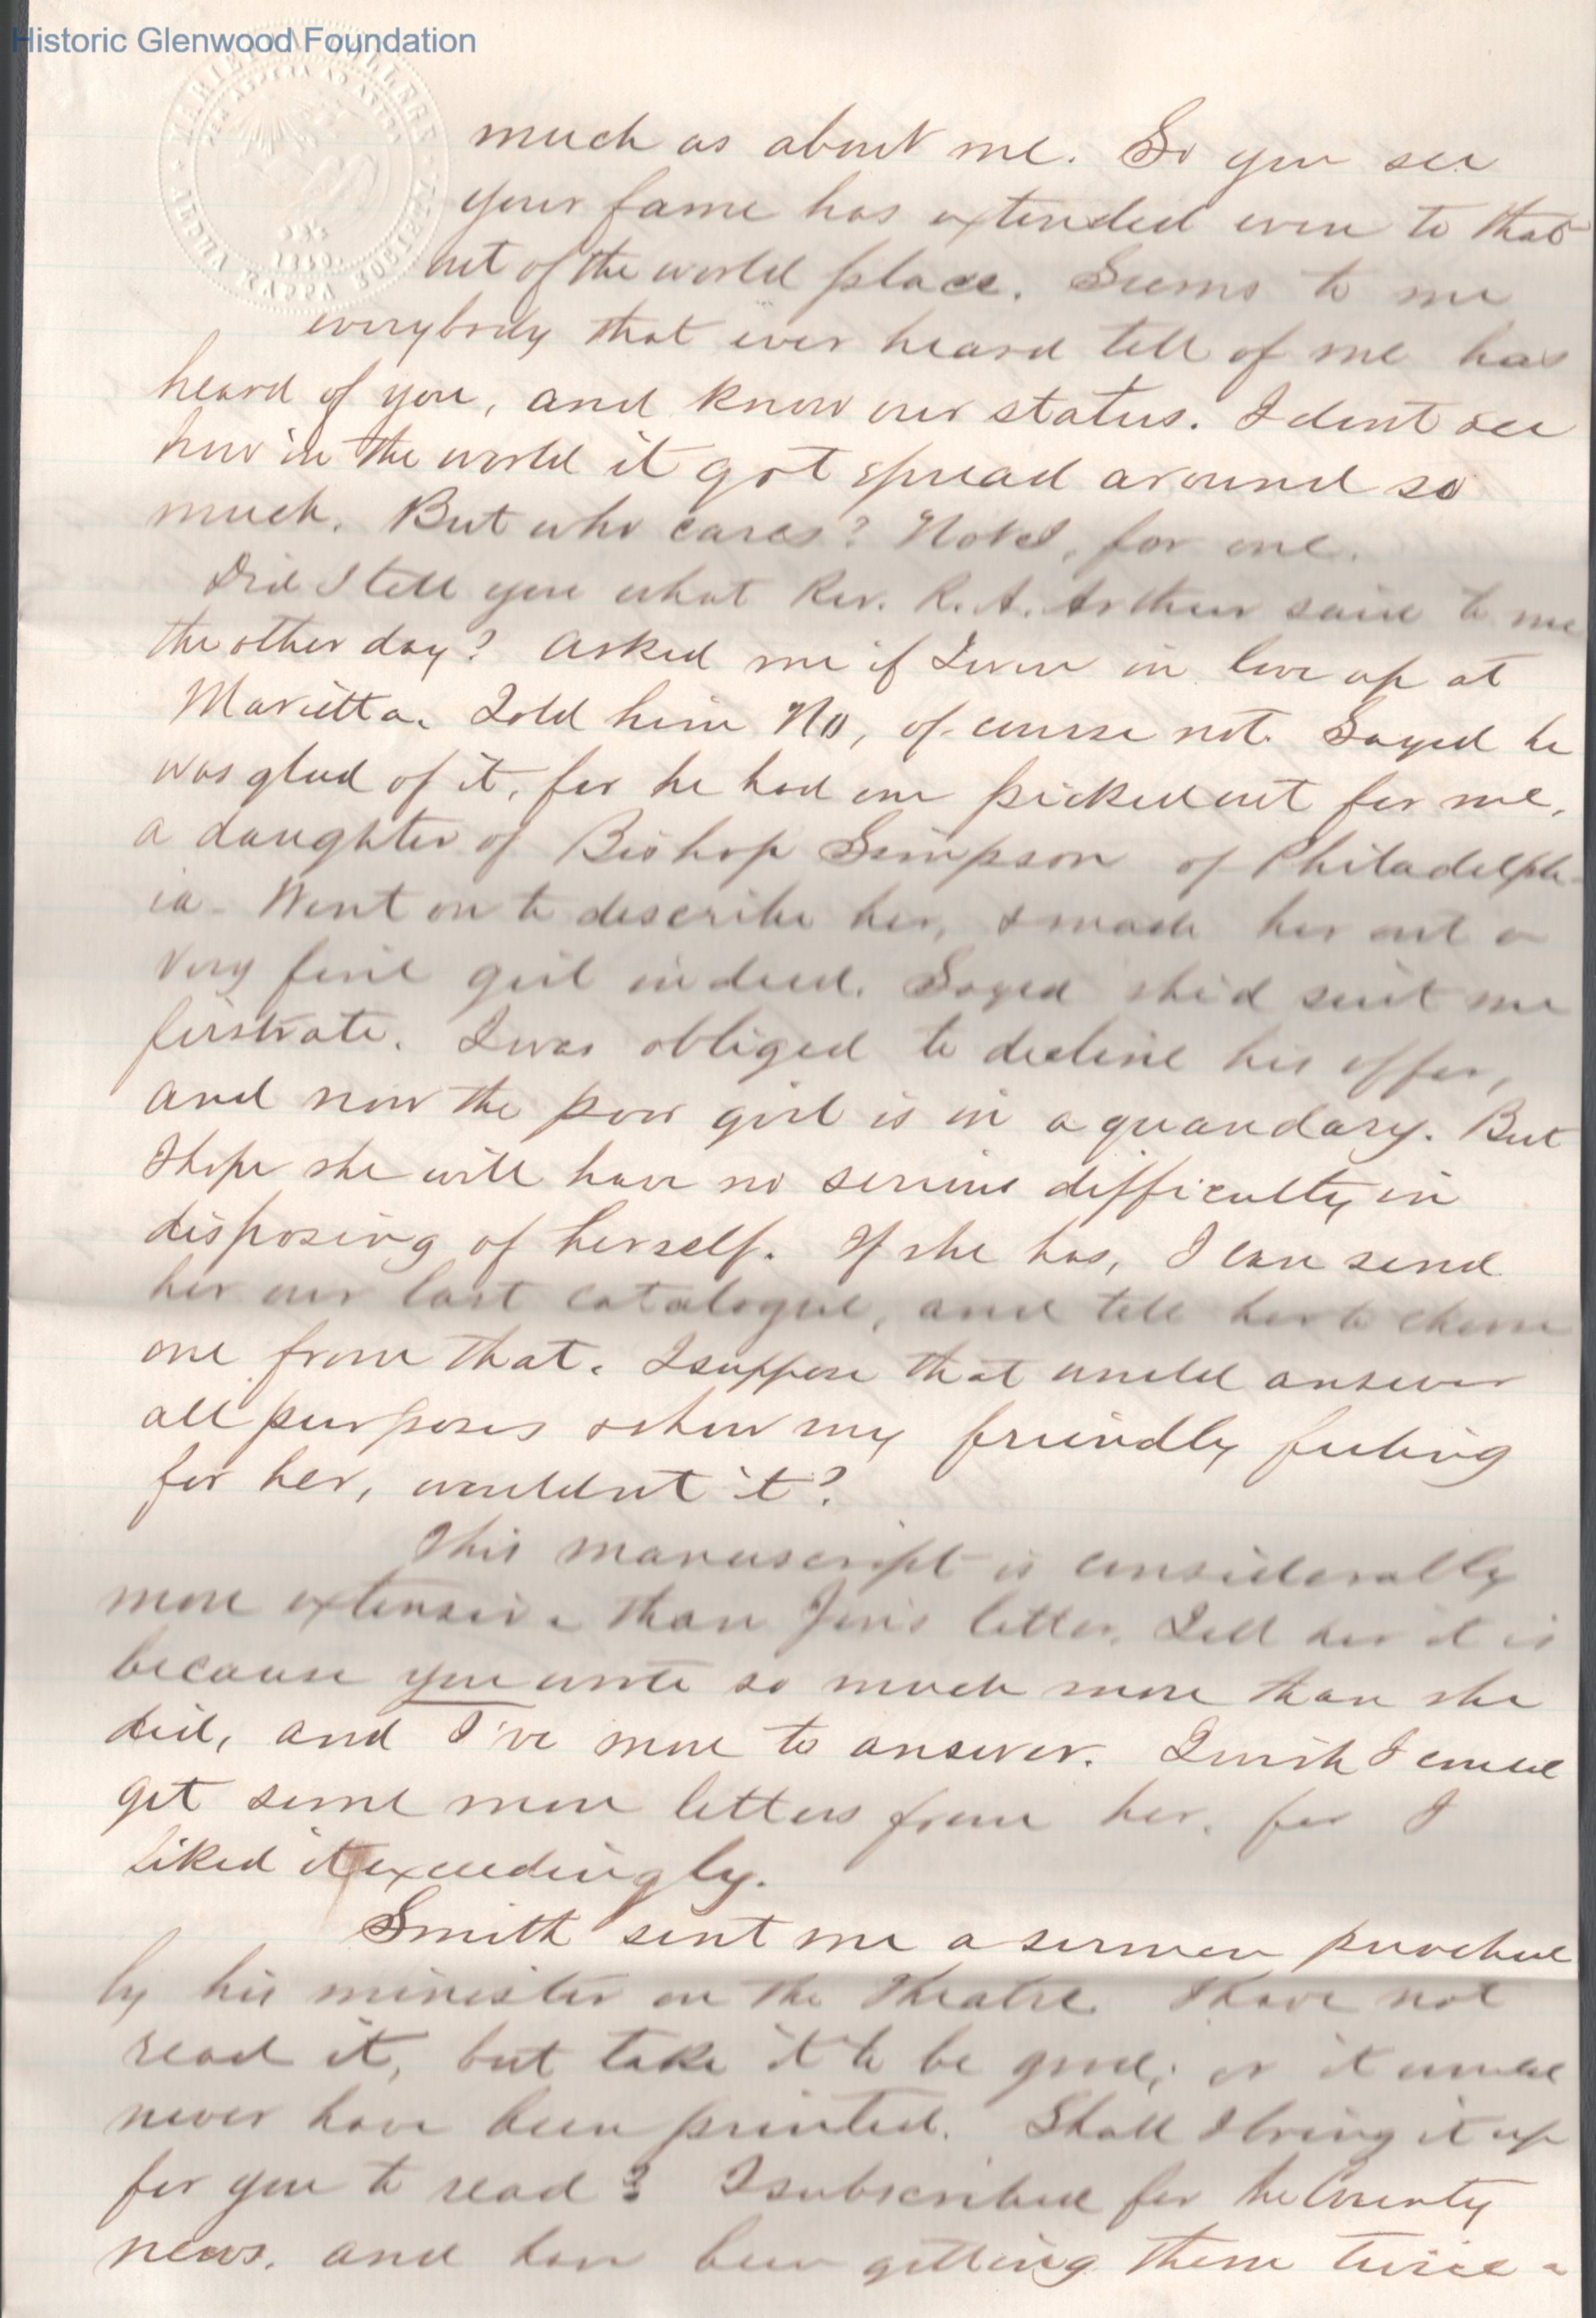 Historic Glenwood Foundation
MARIETTA COLLEGE
PER ASPERA AD ASTRA
1840.
ALPHA KAPPA SOCIETY
much as about me. So you see
your fame has extended even to that
out of the world place. Seems to me
everybody that ever heard tell of me has
heard of you, and know our status. I dont see
how in the world it got spread around so
much. But who cares? Not I, for one.
Did I tell you what Rev. R. A. Arthur said to me
the other day? Asked me if I were in love up at
Marietta. Told him No, of course not. Sayed he
was glad of it, for he had one picked out for me,
a daughter of Bishop Simpson of Philadelph-
ia. Went on to describe her, & made her out a
very fine girl indeed. Sayed she'd suit me
firstrate. I was obliged to decline his offer,
and now the poor girl is in a quandary. But
I hope she will have no serious difficulty in
disposing of herself. If she has, I can send
her our last catalogue, and tell her to choose
one from that. I suppose that would answer
all purposes & show my friendly feeling
for her, wouldnt it?
This manuscript is considerably
more extensive than Jen's letter. Tell her it is
because you wrote so much more than she
did, and I've more to answer. I wish I could
get some more letters from her, for I
liked it exceedingly.
Smith sent me a sermon preached
by his minister on the Theatre. I have not
read it, but take it to be good, or it would
never have been printed. Shall I bring it up
for you to read? I subscribed for the County
news, and have been getting them twice a